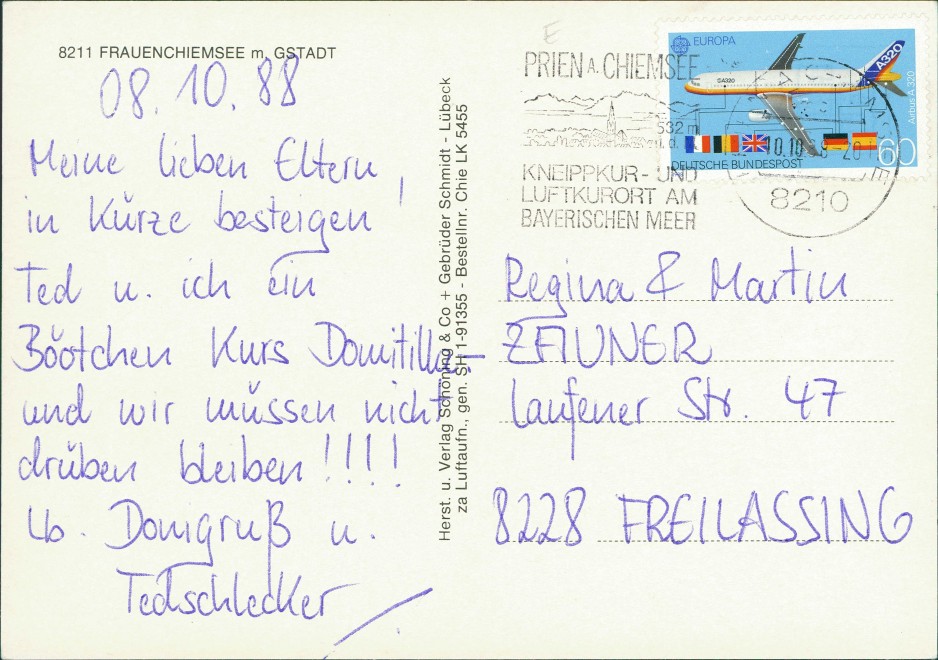 8211 FRAUENCHIEMSEE m. GSTADT
08.10.88
Meine lieben Eltern,
in Kürze besteigen
Ted u. ich ein
Böötchen Kurs Domitilla!
und wir müssen nicht
drüben bleiben!!!!
Lb. Domigruß u.
Tedschlecker
Herst. u. Verlag Schöning & Co + Gebrüder Schmidt - Lübeck
za Luftaufn., gen. SH 1-91355 - Bestellnr. Chie LK 5455
E
PRIEN A. CHIEMSEE
532 m
KNEIPPKUR- UND
LUFTKURORT AM
BAYERISCHEN MEER
EUROPA
A320
A320
Airbus A 320
DEUTSCHE BUNDESPOST
60
10.10.88-20
8210
Regina & Martin
ZEUNER
Laufener Str. 47
8228 FREILASSING